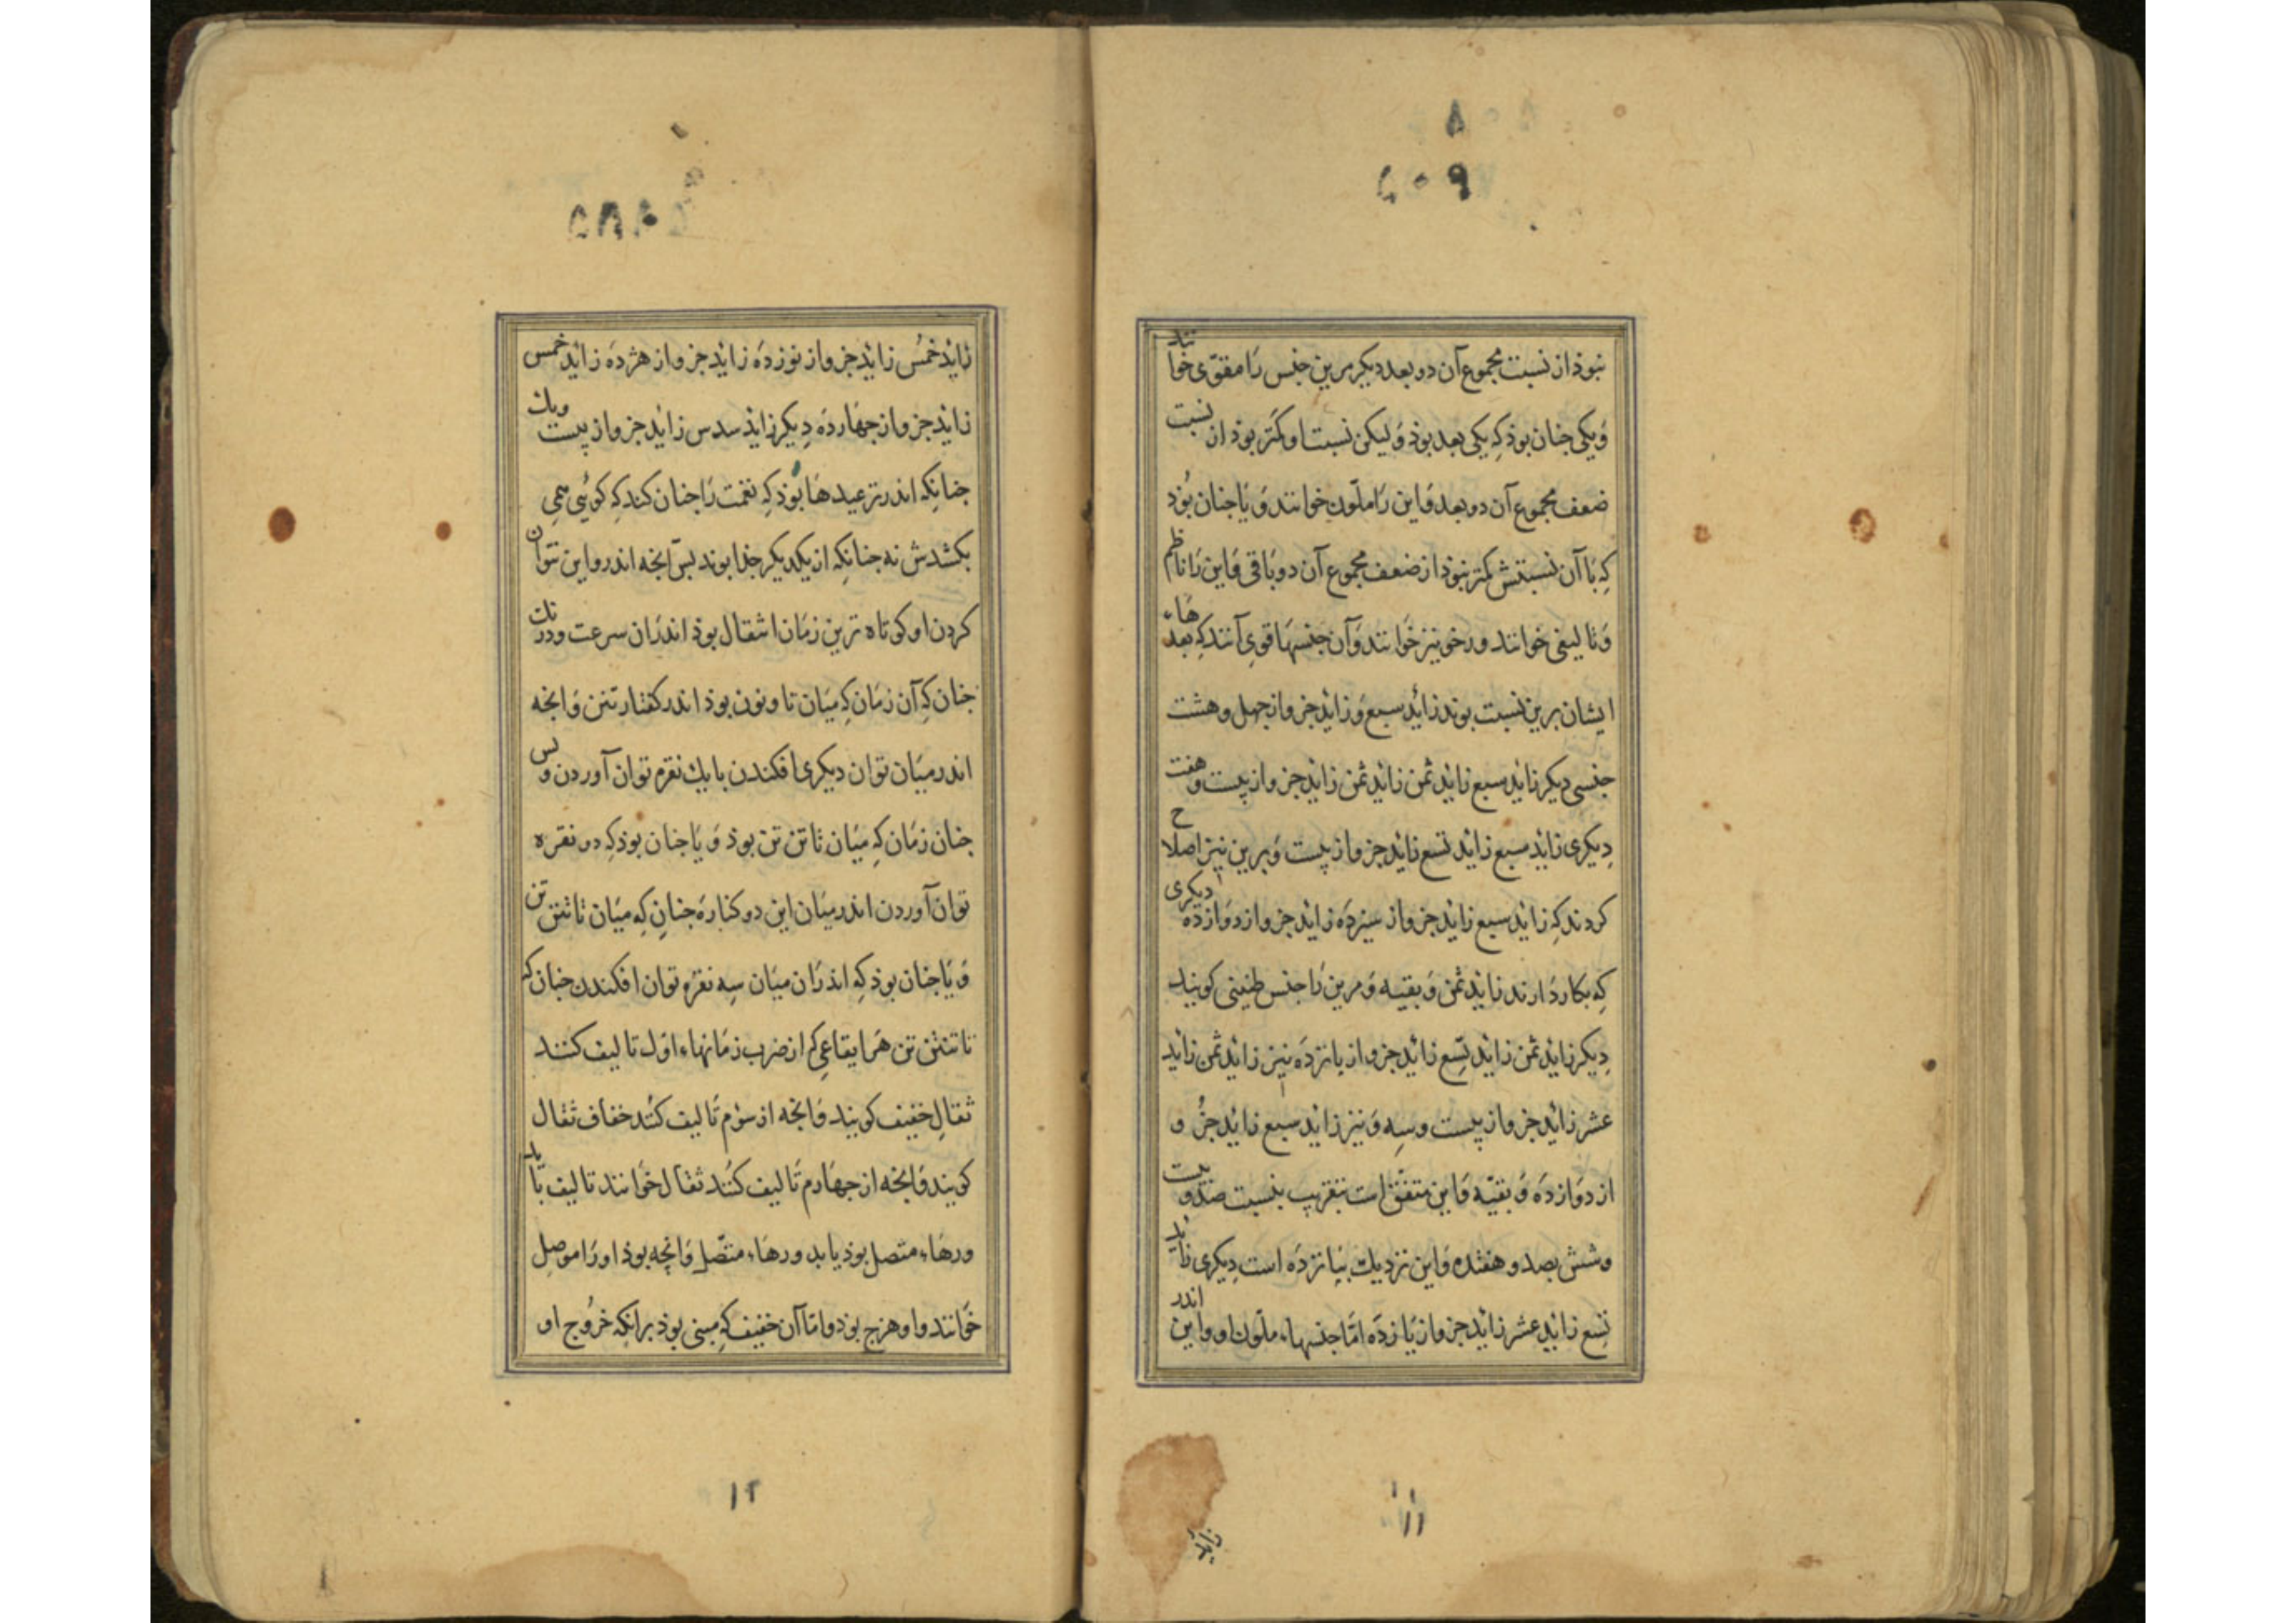 ۸
۶۰۹
نبوذ از نسبت مجموع آن دو بعد دیکر مرین جنس رَا مقوّی خوانند
وَیکی جنان بوذ کِه یکی بعد بوذ وَلیکن نسبت او کمتر بوذ از نسبت
ضعف مجموع آن دو بعد وَاین رَا ملّون خوانند وَیَا جنان بُوَذ
کِه بَا آن نسبتش کمتر نبوذ از ضعف مجموع آن دو بَاقی وَاین رَا ناظم
وَتالیفی خوانند ورخو نیز خوَانند وَآن جنسهَا قوی آنند کِه بعدهَاء
ایشان برین نسبت بوند زائد سبع وَزائد جزو از جهل وهشت
جنسی دیکر زائد سبع زائد ثمن زائد ثمن زائد جزو از بیست وهفت
دِیکری زائد سبع زائد تسع زائد جزو از بیست وَبرین نیز اصلاح
کردند کِه زائد سبع زائد جزو از سیزدَه زائد جزو از دوَازدَه دیکری
کِه بکار دَارند زائد ثمن وَبقیه وَمرین رَا جنس طنینی کویند
دِیکر زائد ثمن زائد تسِع زائد جزو از بانزدَه نیز زائد ثمن زائد
عشر زائد جزو از بیست وسِه وَنیز زائد سبع زائد جزُ و
از دوَازدَه وَبقیّه وَاین متفق است بتقریب بنسبت صدو بیست
وشش بصد وهفده وَاین نزدیك بَبانزدَه است دِیکری زاید
تسِع زائد عشر زائد جزو از یَازدَه امّا جنسهاء ملّون او واین اندر
۱۱
زائد خمُس زائد جزو از نوزدَه زائد جزو از هژدَه زائد خمس
زائد جزو از جهَاردَه دِیکر زائد سدس زائد جزو از بیست ویك
جنانکِه اندر ترعید هَا بُوَذ کِه نغمت رَا جنان کند کِه کوئی همی
بکشدش نه جنانکِه از یکدیکر جذا بوند بسَ آنجه اندرو این نتوان
کردن او کوتاه ترین زمَان انتقال بوذ اندرَان سرعت ودرنك
جنان کِه آن زمَان کِه میَان تا ونون بوذ اندر کفتار تنن وَانجه
اندر میَان توان دیکری افکندن با یك نقره توان آوردن وبس
جنان زمَان کِه میَان تاتن تن بوذ وَیَا جنان بوذ کِه دو نقره
توان آوردن اندر میَان این دو کنارَه جنان کِه میَان تاتنن تن
وَیَا جنان بوذ کِه اندرَان میَان سِه نقرَه توان افکندن جنان که
تاتننن تن هَر ایقاعی کِه از ضرب زمَانهاء اوّل تالیف کنند
ثقالِ خفیف کویند وَانجه از سوُم تَالیف کُنند خفاف ثقال
کویند وَانجه از جهَارم تَالیف کنُند ثقال خوَانند تالیف یَا بد
ورهَاء متصل بوذ یا بد ورهَاء متّصل وَانچه بوذ او رَا موصِل
خوَانند واو هزج بوذ وامّا آن خفیف کِه مبنی بوذ برانکِه خرُوج او
۱۲